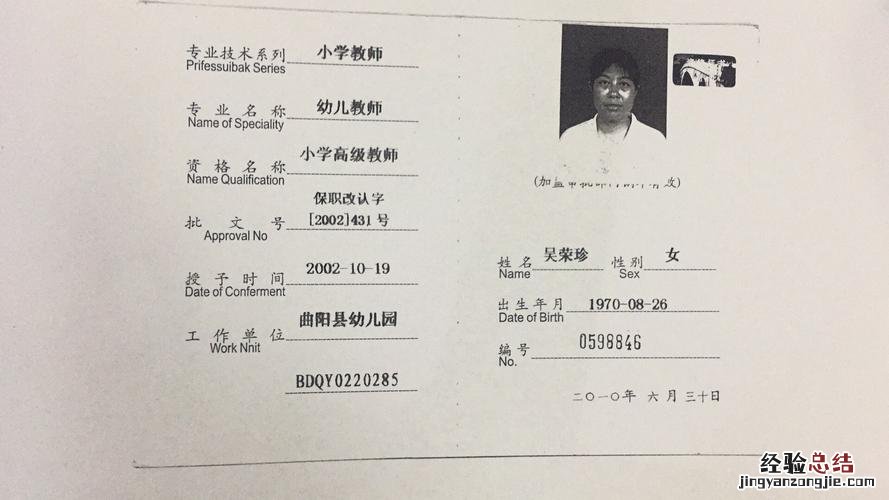 专业技术系列 小学教师
Prifessuibak Series
专业名称 幼儿教师
Name of Speciality
资格名称 小学高级教师
Name Qualification
保职改认字
批文号 [2002]431号
Approval No
授予时间 2002-10-19
Date of Conferment
工作单位 曲阳县幼儿园
Work Nnit
BDQY0220285
姓名 吴荣珍 性别 女
Name Sex
出生年月 1970-08-26
Date of Birth
编号 0598846
No.
二〇一〇年 六月 三十日
经验总结
jingyanzongjie.com